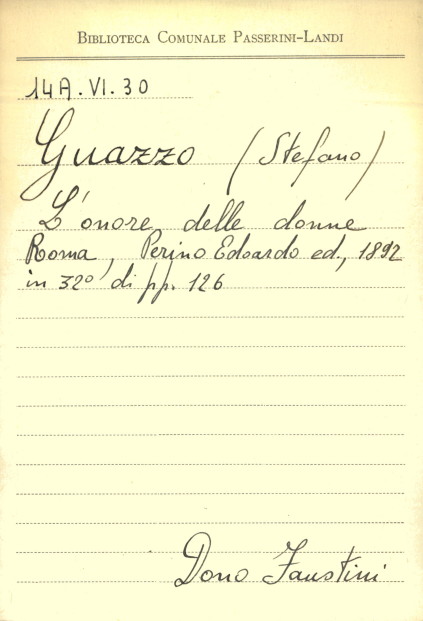 BIBLIOTECA COMUNALE PASSERINI-LANDI
14A.VI.30
Guazzo (Stefano)
L'onore delle donne
Roma, Perino Edoardo ed., 1892
in 32° di pp. 126
Dono Faustini